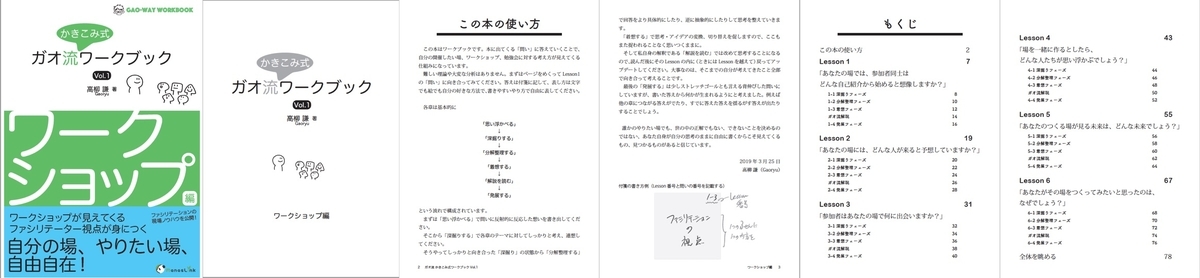 GAO-WAY WORKBOOK
かきこみ式
ガオ流ワークブック
Vol.1
高柳 謙 著
Gaoryu
ワーク
ショップ
編
ワークショップが見えてくる
ファシリテーター視点が身につく
ファシリテーションの
現場ノウハウを公開!
自分の場、やりたい場、
自由自在!
かきこみ式
ガオ流ワークブック
Vol.1
高柳 謙 著
Gaoryu
ワークショップ編
この本の使い方
この本はワークブックです。本に出てくる「問い」に答えていくことで、
自分の開催したい場、ワークショップ、勉強会に対する考え方が見えてくる
仕組みになっています。
難しい理論や大変な分析はありません。まずはページをめくって Lesson1
の「問い」に向き合ってみてください。答えは付箋に記して、表し方は文字
でも絵でも自分の好きな方法で、書きやすいやり方で自由に表してください。
各章は基本的に
「思い浮かべる」
↓
「深掘りする」
↓
「分解整理する」
↓
「着想する」
↓
「解説を読む」
↓
「発展する」
という流れで構成されています。
まずは「思い浮かべる」で問いに反射的に反応した想いを書き出してくだ
さい。
そこから「深掘りする」で各章のテーマに対してしっかりと考え、連想し
てください。
そうやってしっかりと向き合った「深掘り」の状態から「分解整理する」
2 ガオ流 かきこみ式ワークブック Vol.1
で回答をより具体的にしたり、逆に抽象的にしたりして思考を整えていきま
す。
「着想する」で思考・アイデアの変換、切り替えを促しますので、ここも
また捉われることなく思いつくままに。
そして私自身の解釈である「解説を読む」では改めて思考することになる
ので、読んだ後にその Lesson の内に(ときには Lesson を越えて)戻ってアッ
プデートしてください。大事なのは、そこまでの自分が考えてきたことと全部
向き合って考えることです。
最後の「発展する」は少しストレッチゴールとも言える背伸びした問いに
していますが、書いた答えから何かが生まれるようにと考えました。例えば
他の章につながる答えがでたり、すでに答えた答えを揺るがす答えが出たり
することでしょう。
誰かのやりたい場でも、世の中の正解でもない、できないことを決めるの
ではない、あなた自身が自分の思考のままに自由に書くからこそ見えてくる
もの、見つかるものがあると信じています。
2019 年 3 月 25 日
高柳 謙(Gaoryu)
付箋の書き方例(Lesson 番号と問いの番号を記載する)
1-3
ファシリテーション
の
視点
ワークショップ編 3
もくじ
この本の使い方 2
Lesson 1 7
「あなたの場では、参加者同士は
どんな自己紹介から始めると想像しますか?」
1-1 深掘りフェーズ 8
1-2 分解整理フェーズ 10
1-3 着想フェーズ 12
ガオ流解説 14
1-4 発展フェーズ 16
Lesson 2 19
「あなたの場には、どんな人が来ると予想していますか?」
2-1 深掘りフェーズ 20
2-2 分解整理フェーズ 22
2-3 着想フェーズ 24
ガオ流解説 26
2-4 発展フェーズ 28
Lesson 3 31
「参加者はあなたの場で何に出会いますか?」
3-1 深掘りフェーズ 32
3-2 分解整理フェーズ 34
3-3 着想フェーズ 36
ガオ流解説 38
3-4 発展フェーズ 40
Lesson 4 43
「場を一緒に作るとしたら、
どんな人たちが思い浮かぶでしょう?」
4-1 深掘りフェーズ 44
4-2 分解整理フェーズ 46
4-3 着想フェーズ 48
ガオ流解説 50
4-4 発展フェーズ 52
Lesson 5 55
「あなたのつくる場が見る未来は、どんな未来でしょう?」
5-1 深掘りフェーズ 56
5-2 分解整理フェーズ 58
5-3 着想フェーズ 60
ガオ流解説 62
5-4 発展フェーズ 64
Lesson 6 67
「あなたがその場をつくってみたいと思ったのは、
なぜでしょう?」
6-1 深掘りフェーズ 68
6-2 分解整理フェーズ 70
6-3 着想フェーズ 72
ガオ流解説 74
6-4 発展フェーズ 76
全体を眺める 78